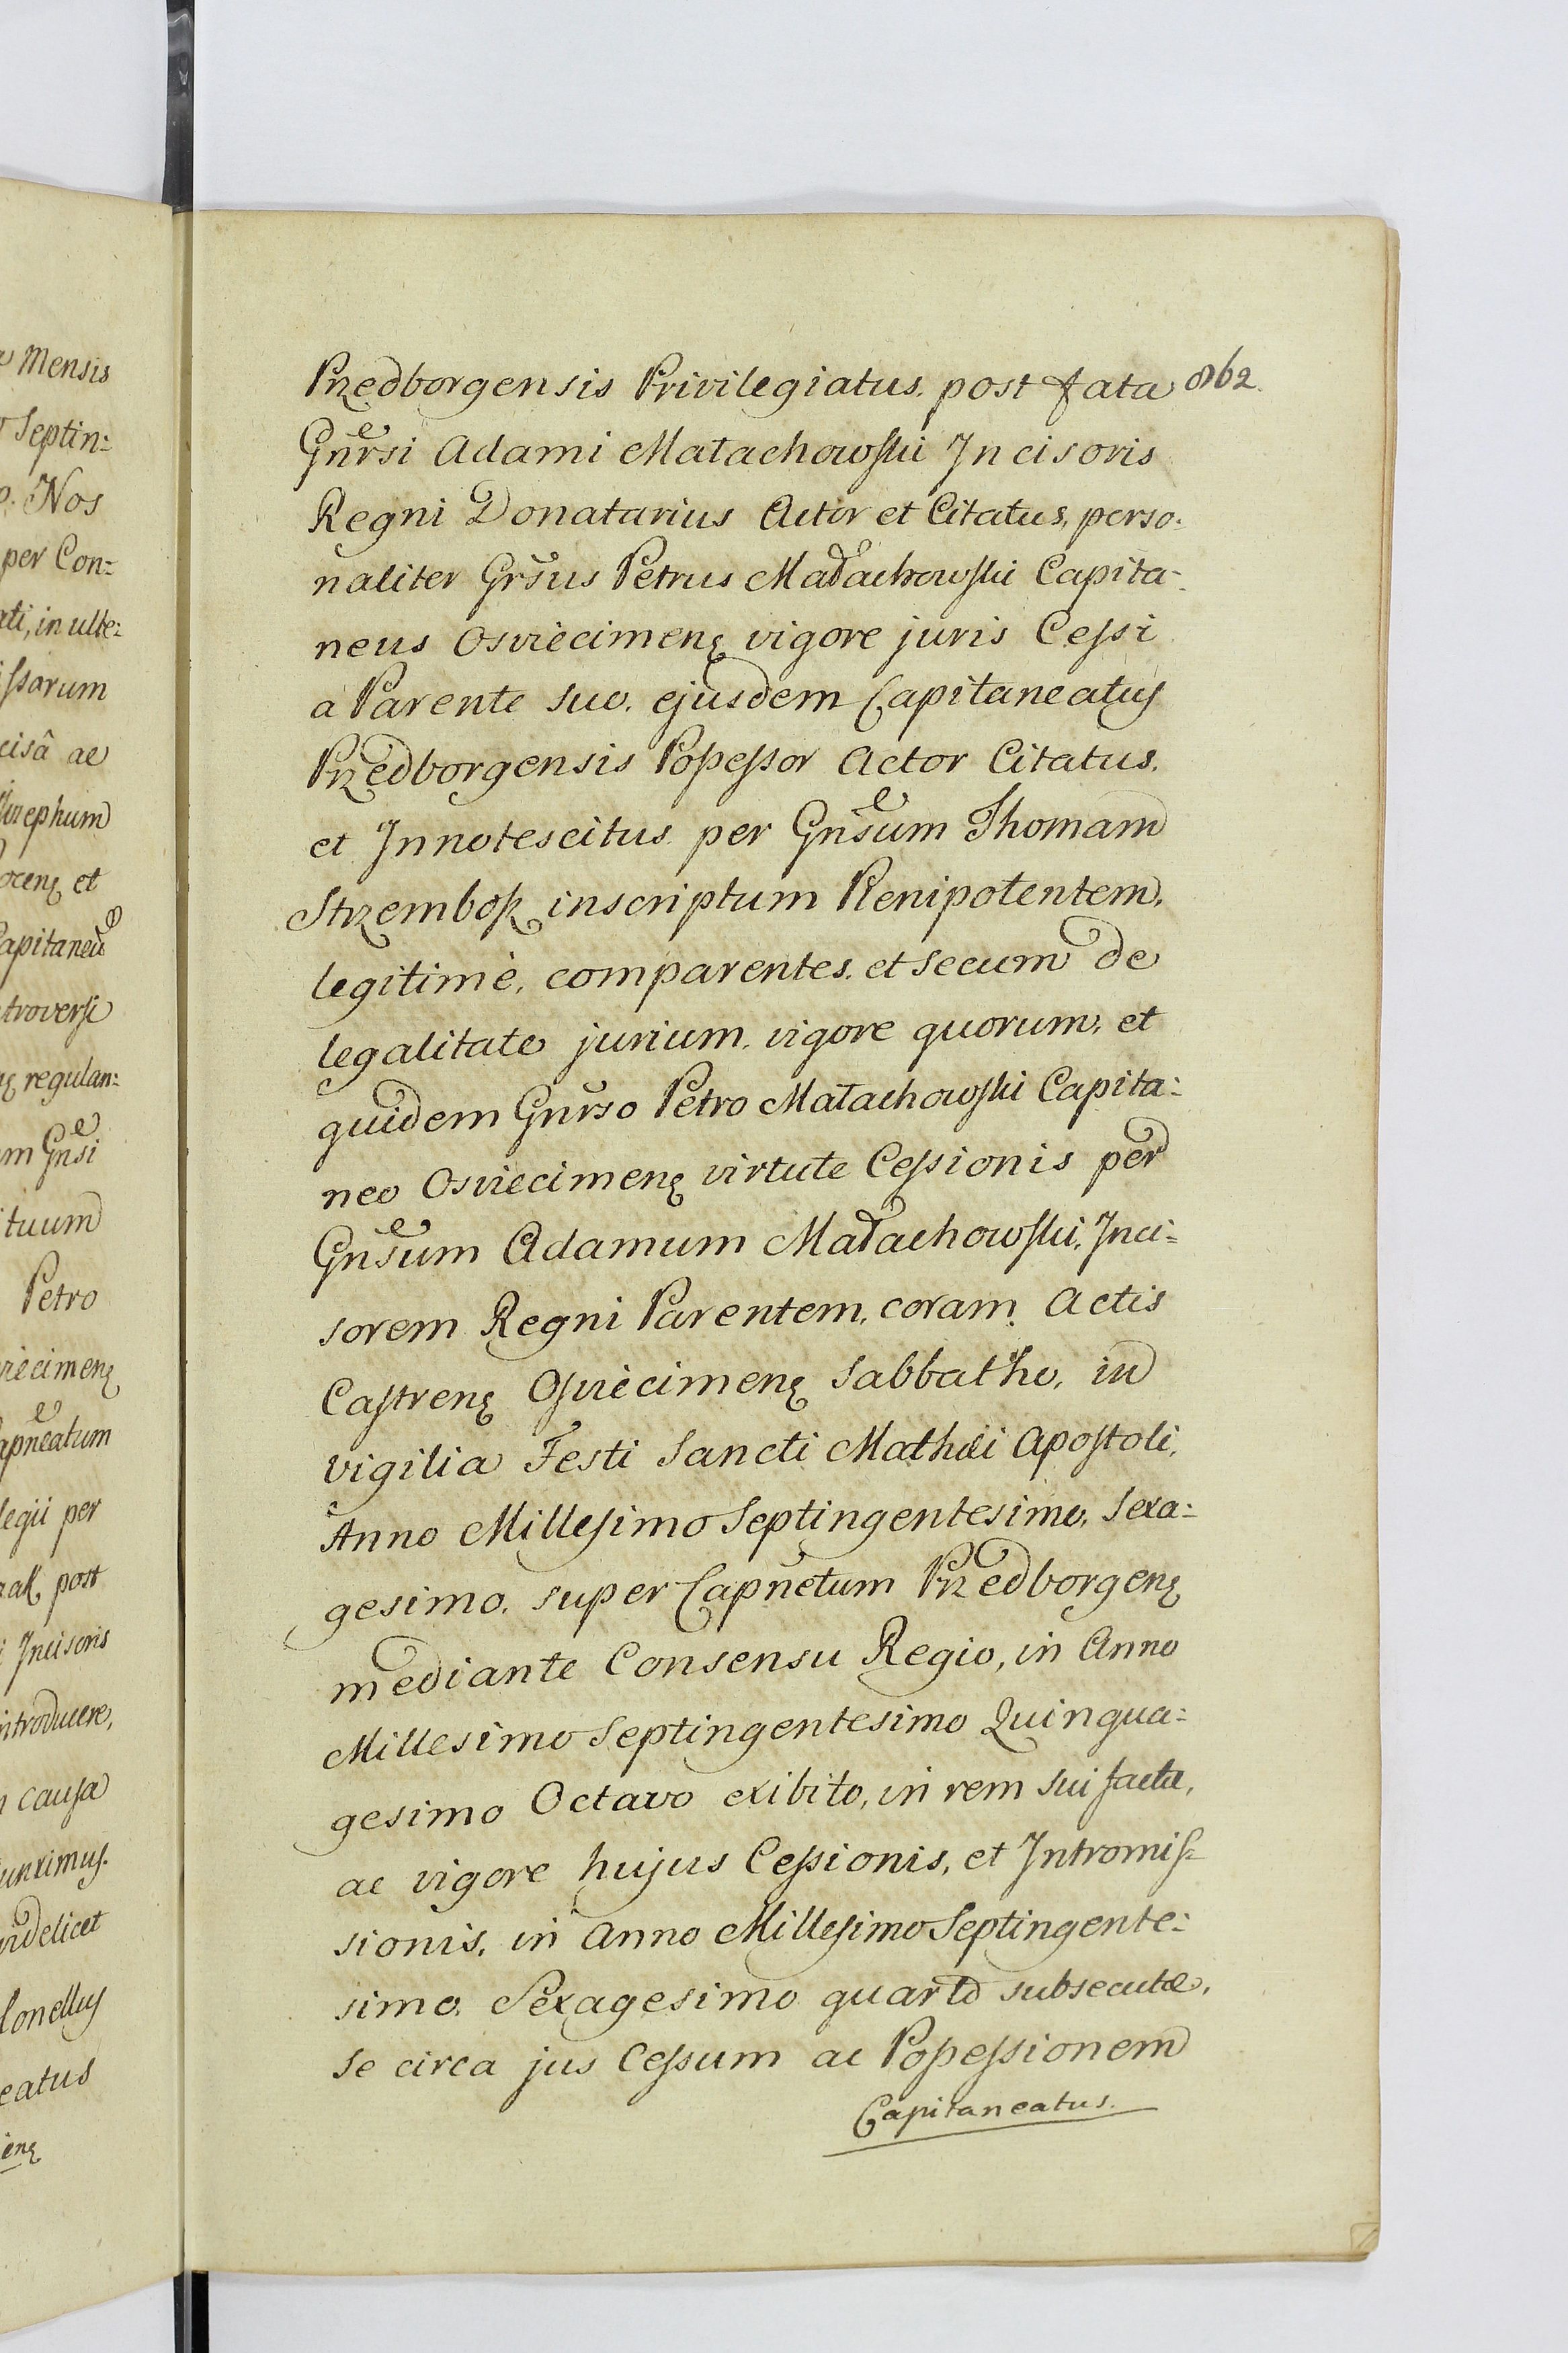 Mensis
Septin:
Nos
per Con:
ati, in ulte:
ssarum
cisâ ac
ocenę et
Capitaneũ
troversi
nę regulan:
m Gñsi
tuum
Petro
viècimenę
apñeatum
legii per
post
i Incisoris
introducere,
causa
unximus.
videlicet
lonellus
eatus
ienę
862.
Przedborgensis Privilegiatus. post fata
Gñrsi Adami Małachowski Incisoris
Regni Donatarius Actor et Citatus, perso:
naliter Grsus Petrus Małachowski Capita:
neus Osviècimenę vigore juris Cessi
a Parente suo. ejusdem Capitaneatus
Przedborgensis Possessor Actor Citatus.
et Innotescitus per Gñsum Thomam
Strzembosz inscriptum Plenipotentem,
legitimè, comparentes. et secum de
legalitate jurium. vigore quorum, et
quidem Gnrso Petro Małachowski Capita:
neo Osviecimenę virtute Cessionis per
Gñsum Adamum Małachowski, Inci:
sorem Regni Parentem, coram Actis
Castrenę Osviècimenę Sabbatho, in
vigilia Festi Sancti Mathæi Apostoli,
Anno Millesimo Septingentesimo, Sexa:
gesimo, super Capñetum Przedborgenę
mediante Consensu Regio, in Anno
Millesimo Septingentesimo Quinqua:
gesimo Octavo exibito, in rem sui factæ,
ac vigore hujus Cessionis, et Intromis:
sionis, in Anno Millesimo Septingente:
simo, Sexagesimo quarto subsecutæ,
se circa jus Cessum ac Possessionem
Capitaneatus.